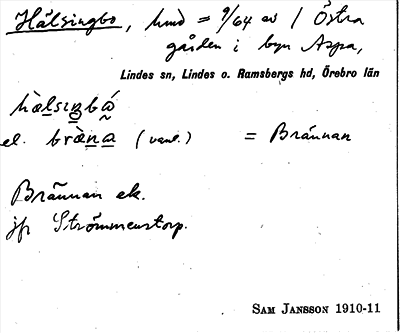 Hälsingbo, hmd = 9/64 av / Östra
gården i byn Aspa,
Lindes sn, Lindes o. Ramsbergs hd, Örebro län
hὰlsıŋbó
el. brὰna (vanl.) = Brännan
Brännan ek.
jfr Strömmenstorp.
SAM JANSSON 1910-11